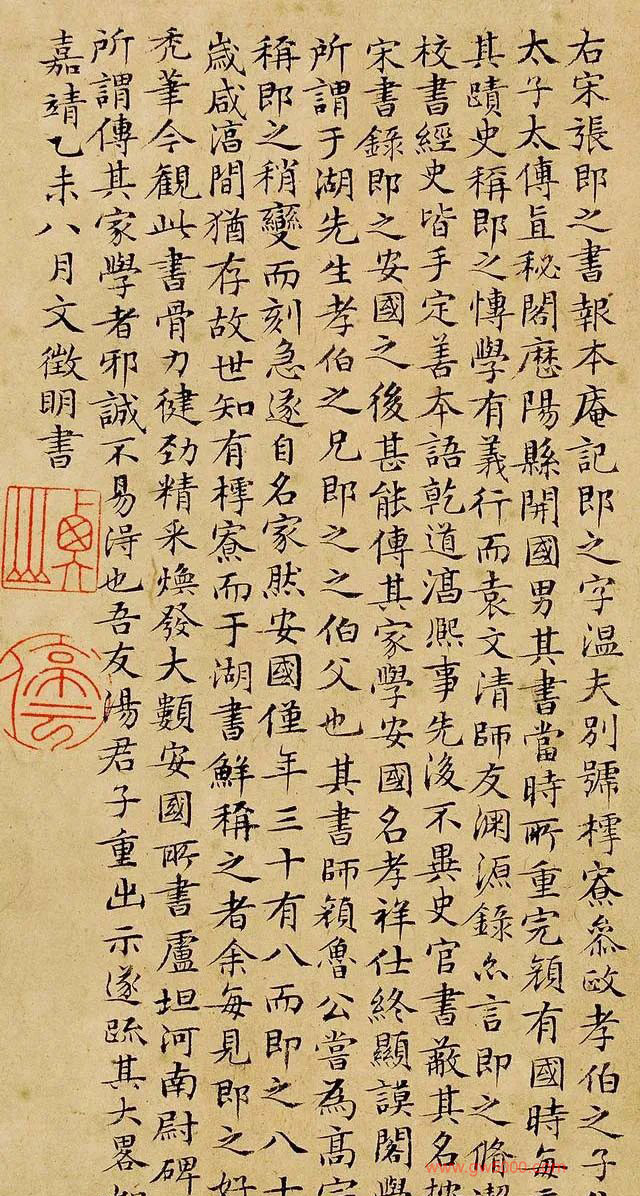 右宋張即之書報本庵記即之字溫夫別號樗寮叅政孝伯之子
太子太傅直秘閣歷陽縣開國男其書當時所重完顏有國時每
其蹟史稱即之博學有義行而袁文清師友渊源錄亦言即之脩潔
校書經史皆手定善本語乾道淳熙事先後不異史官書蔽其名
宋書錄即之安國之後甚能傳其家學安國名孝祥仕終顯謨閣學
所謂于湖先生孝伯之兄即之之伯父也其書師顏魯公嘗為高宗
稱即之稍變而刻急遂自名家然安國僅年三十有八而即之八十
歲咸淳間猶存故世知有樗寮而于湖書鮮稱之者余每見即之好
禿筆今觀此書骨力健勁精采煥發大類安國所書盧坦河南尉碑
所謂傳其家學者邪誠不易得也吾友湯君子重出示遂疏其大畧
嘉靖乙未八月文徵明書
停雲